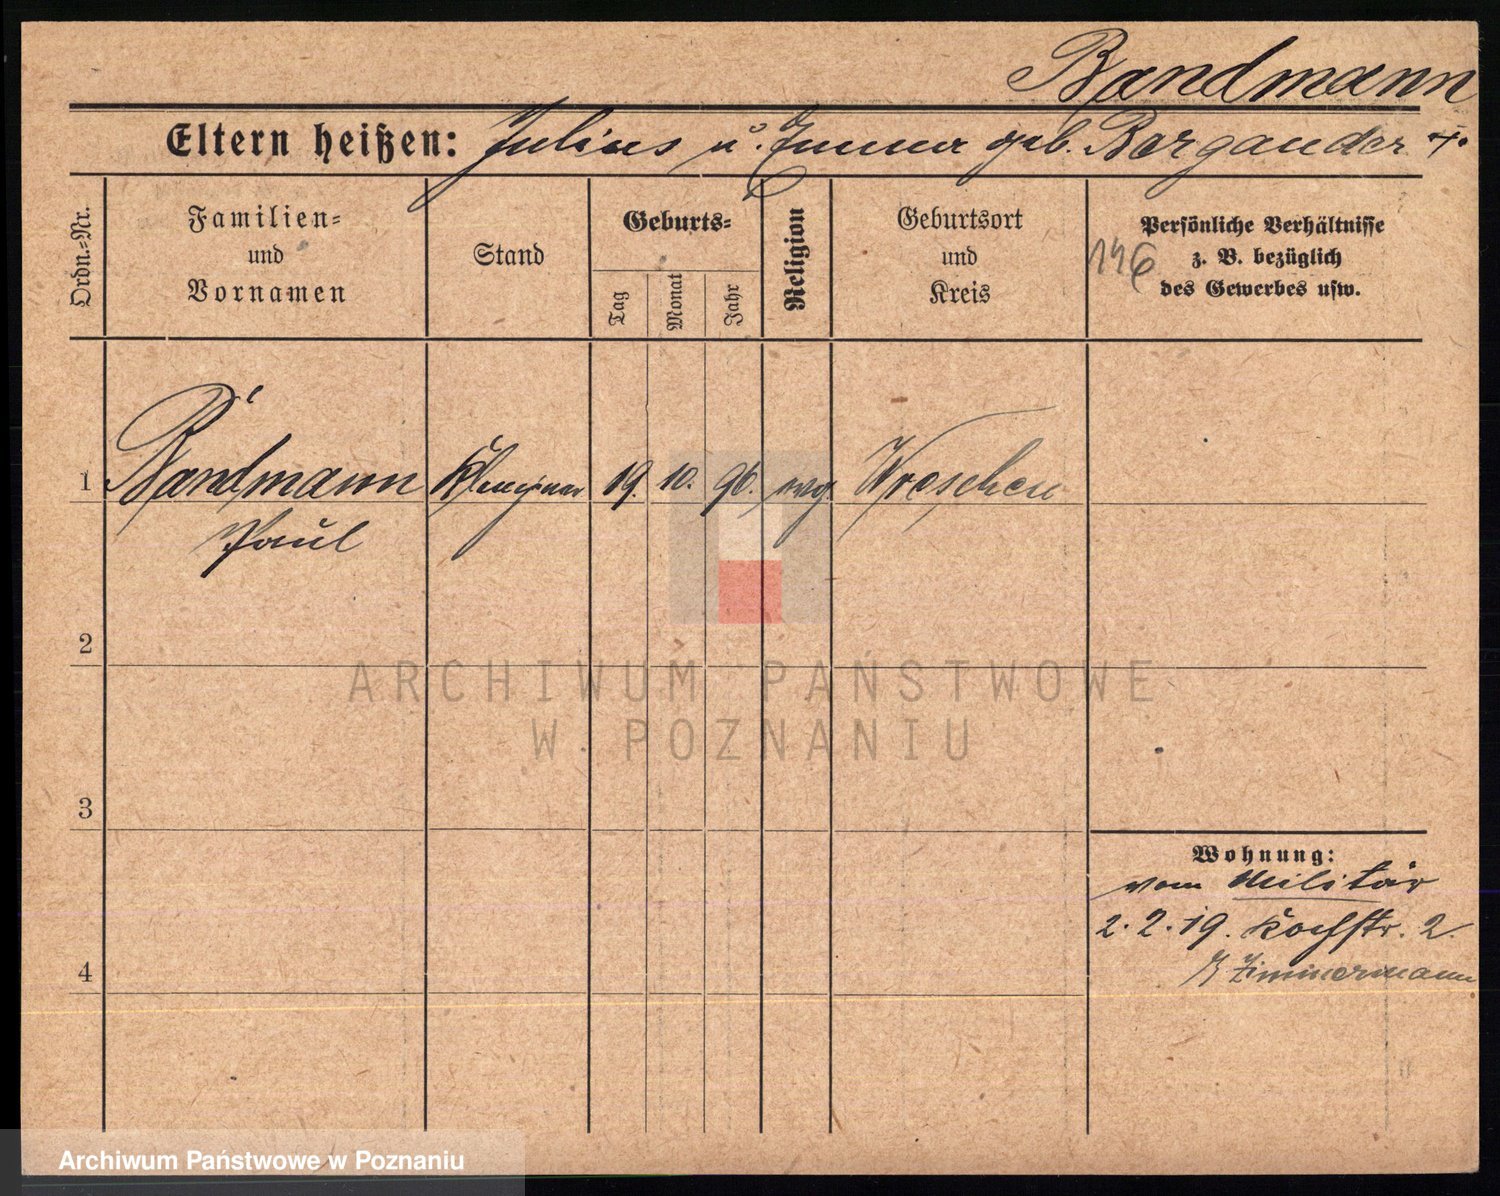 Bandmann
Eltern heißen: Julius u. Emma geb. Bergander †.
Ordn.=Nr.
Familien=
und
Vornamen
Stand
Geburts=
Tag
Monat
Jahr
Religion
Geburtsort
und
Kreis
Persönliche Verhältnisse
z. B. bezüglich
des Gewerbes usw.
146
1 Bandmann Klempner 19. 10. 96. evg. Wreschen
Paul
2
3
4
Wohnung:
vom Militär
2. 2. 19. Kochstr. 2.
Zimmermann
ARCHIWUM PAŃSTWOWE
W POZNANIU
Archiwum Państwowe w Poznaniu